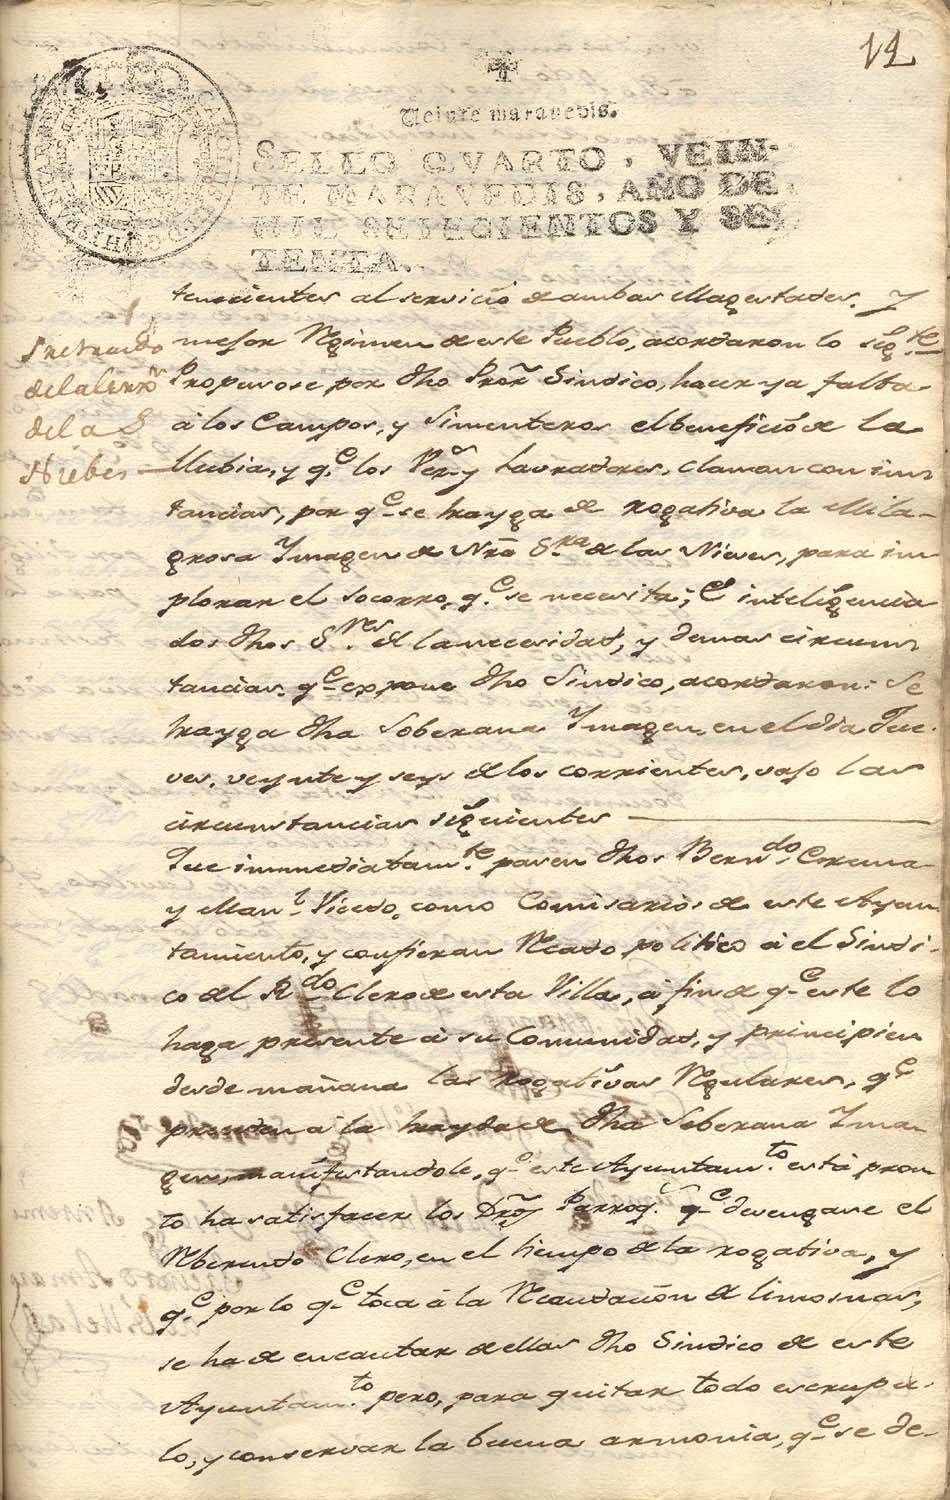 12
Veinte maravedis.
SELLO QVARTO, VEIN-
TE MARAVEDIS, AÑO DE
MIL SETECIENTOS Y SE-
TENTA.
tenecientes al servicio de ambas Magestades. Y
mejor Regimen de este Pueblo, acordaron lo sigte
Propusose por dho Pror Sindico, hacer ya falta
â los Campos, y Simenteros el beneficio de la
llubia, y qe los Veros y Lauradores, claman con ins
tancias, por qe se trayga de rogativa la Mila-
grosa Ymagen de Nra Sra de las Nieves, para im
plorar el socorro, qe se necesita; E inteligencia
dos dhos Sres de la necesidad, y demas circuns
tancias qe expone dho Sindico, acordaron: Se
trayga dha Soberana Ymagen, en el dia Jue-
ves, veynte y seys de los corrientes, vajo las
circunstancias siguientes
Que immediatamte pasen dhos Berndo Crema
y Manl Vicedo, como Comisarios de este Ayun
tamiento, y confieran Recado politico â el Sindi-
co del Rdo Clero de esta Villa, â fin de qe este lo
haga presente â su Comunidad, y principien
desde mañana las rogativas Regulares, qe
preceden â la trayda de dha Soberana Yma-
gen, manifestandole, qe este Ayuntamto està pron
to ha satisfacer los Dros Parroqs qe devengare el
Reberendo Clero, en el tiempo de la rogativa, y
qe por lo qe toca â la Recaudacion de limosnas,
se ha de encautar de ellas dho Sindico de este
Ayuntamto pero, para quitar todo escrupu-
lo, y conservar la buena armonia, qe se de-
de la S
Niebes